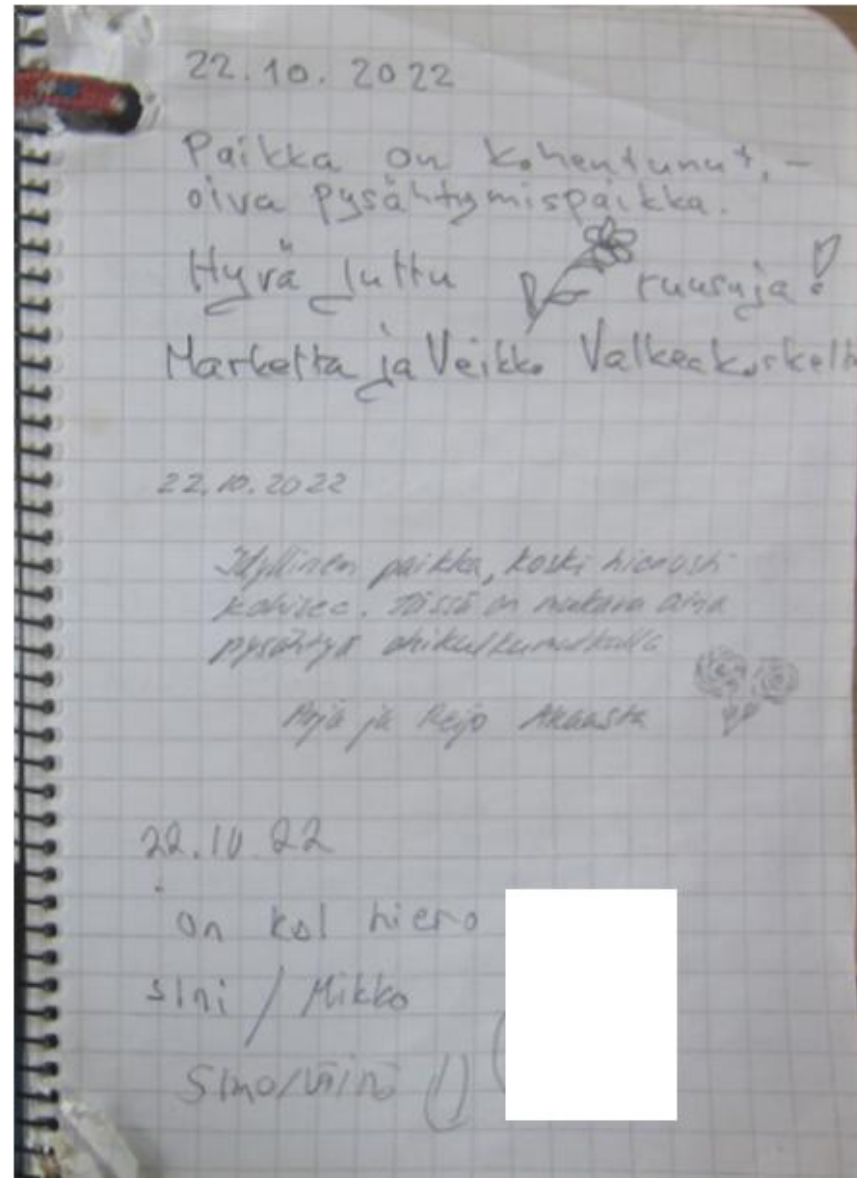 22.10.2022
Paikka on kohentunut, –
oiva pysähtymispaikka.
Hyvä juttu ruusuja!
Marketta ja Veikko Valkeakoskelta
22.10.2022
Idyllinen paikka, koski hienosti
kohisee. Tässä on mukava aina
pysähtyä ohikulkumatkalla
Arja ja Reijo Akaasta
22.10.22
on kol hieno
sini / Mikko
Simo/Väinö